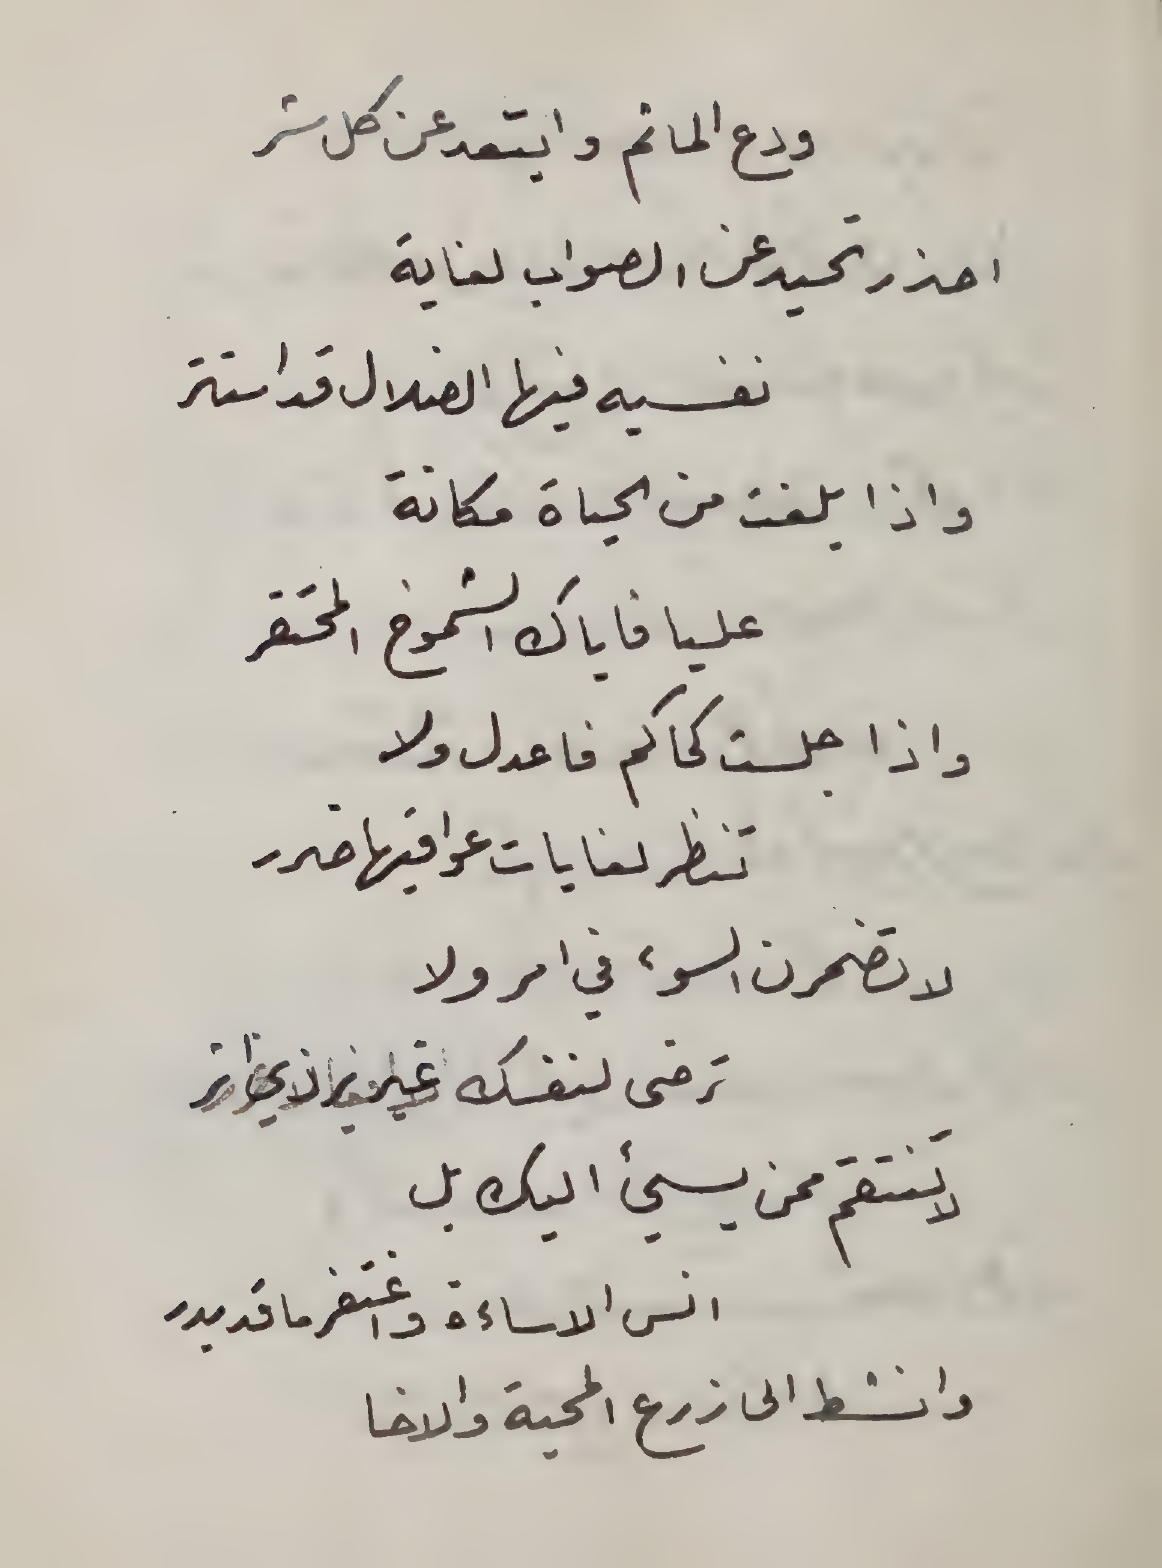 ودع الماتم وابتعد عن كل شر
احذر تحيد عن الصواب لغاية
نفسيه فيها الضلال قد استتر
واذا بلغت من الحياة مكانة
عليا فاياك الشموخ المحتقر
واذا جلست كحاكم فاعدل ولا
تنظر لغايات عواقبها ضرر
لا تضمرن السوء في امر ولا
ترضى لنفسك غير
لا تنتقم ممن يسيئ اليك بل
انس الاساءة واغتفر ما قد بدر
وانشط الى زرع المحبة والاخا